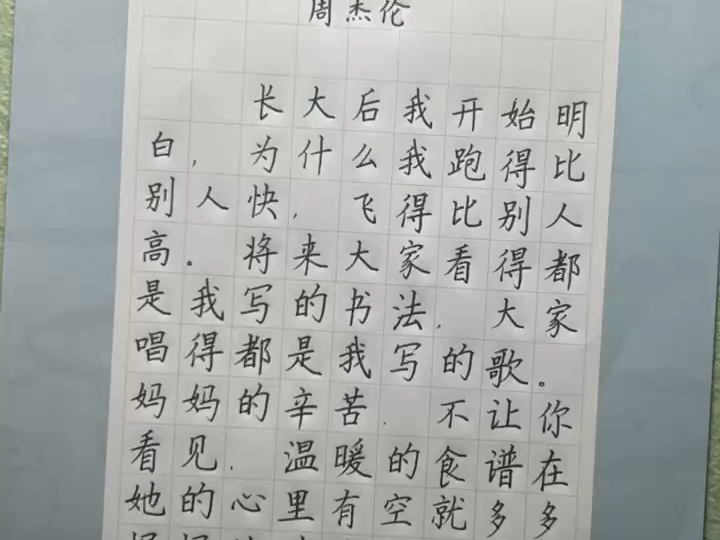 周杰伦
长大后我开始明
白，为什么我跑得比
别人快，飞得比别人
高。将来大家看得都
是我写的书法，大家
唱得都是我写的歌。
妈妈的辛苦，不让你
看见，温暖的食谱在
她的心里有空就多多